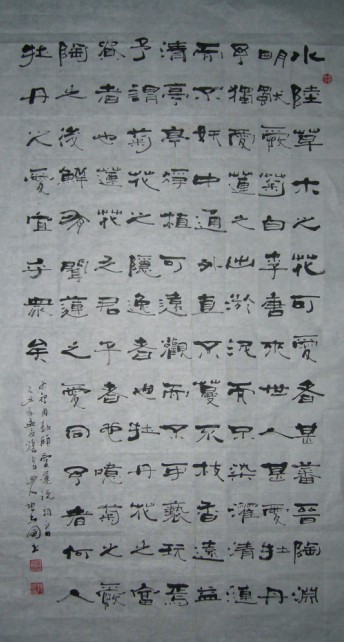 水陸草木之花可愛者甚蕃晉陶淵
明獨愛菊自李唐來世人甚愛牡丹
予獨愛蓮之出淤泥而不染濯清漣
而不妖中通外直不蔓不枝香遠益
清亭亭淨植可遠觀而不可褻玩焉
予謂菊花之隱逸者也牡丹花之富
貴者也蓮花之君子者也噫菊之愛
陶之後鮮有聞蓮之愛同予者何人
牡丹之愛宜乎眾矣
周敦頤愛蓮說